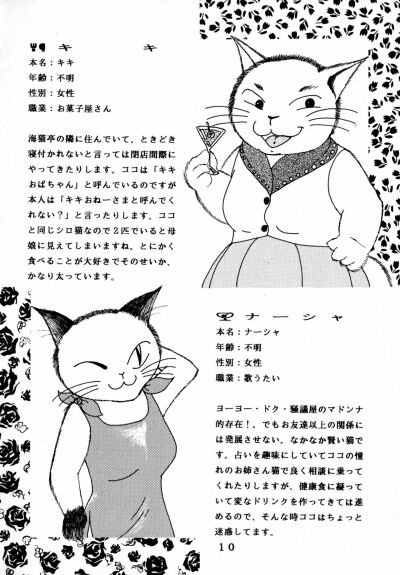 キキ
本名：キキ
年齢：不明
性別：女性
職業：お菓子屋さん
海猫亭の隣に住んでいて、ときどき
寝付かれないと言っては閉店間際に
やってきたりします。ココは「キキ
おばちゃん」と呼んでいるのですが
本人は「キキおねーさまと呼んでく
れない？」と言ったりします。ココ
と同じシロ猫なので２匹でいると母
娘に見えてしまいますね。とにかく
食べることが大好きでそのせいか、
かなり太っています。
ナーシャ
本名：ナーシャ
年齢：不明
性別：女性
職業：歌うたい
ヨーヨー・ドク・騒議屋のマドンナ
的存在！。でもお友達以上の関係に
は発展させない。なかなか賢い猫で
す。占いを趣味にしていてココの憧
れのお姉さん猫で良く相談に乗って
くれたりしますが、健康食に凝って
いて変なドリンクを作ってきては進
めるので、そんな時ココはちょっと
迷惑してます。
10